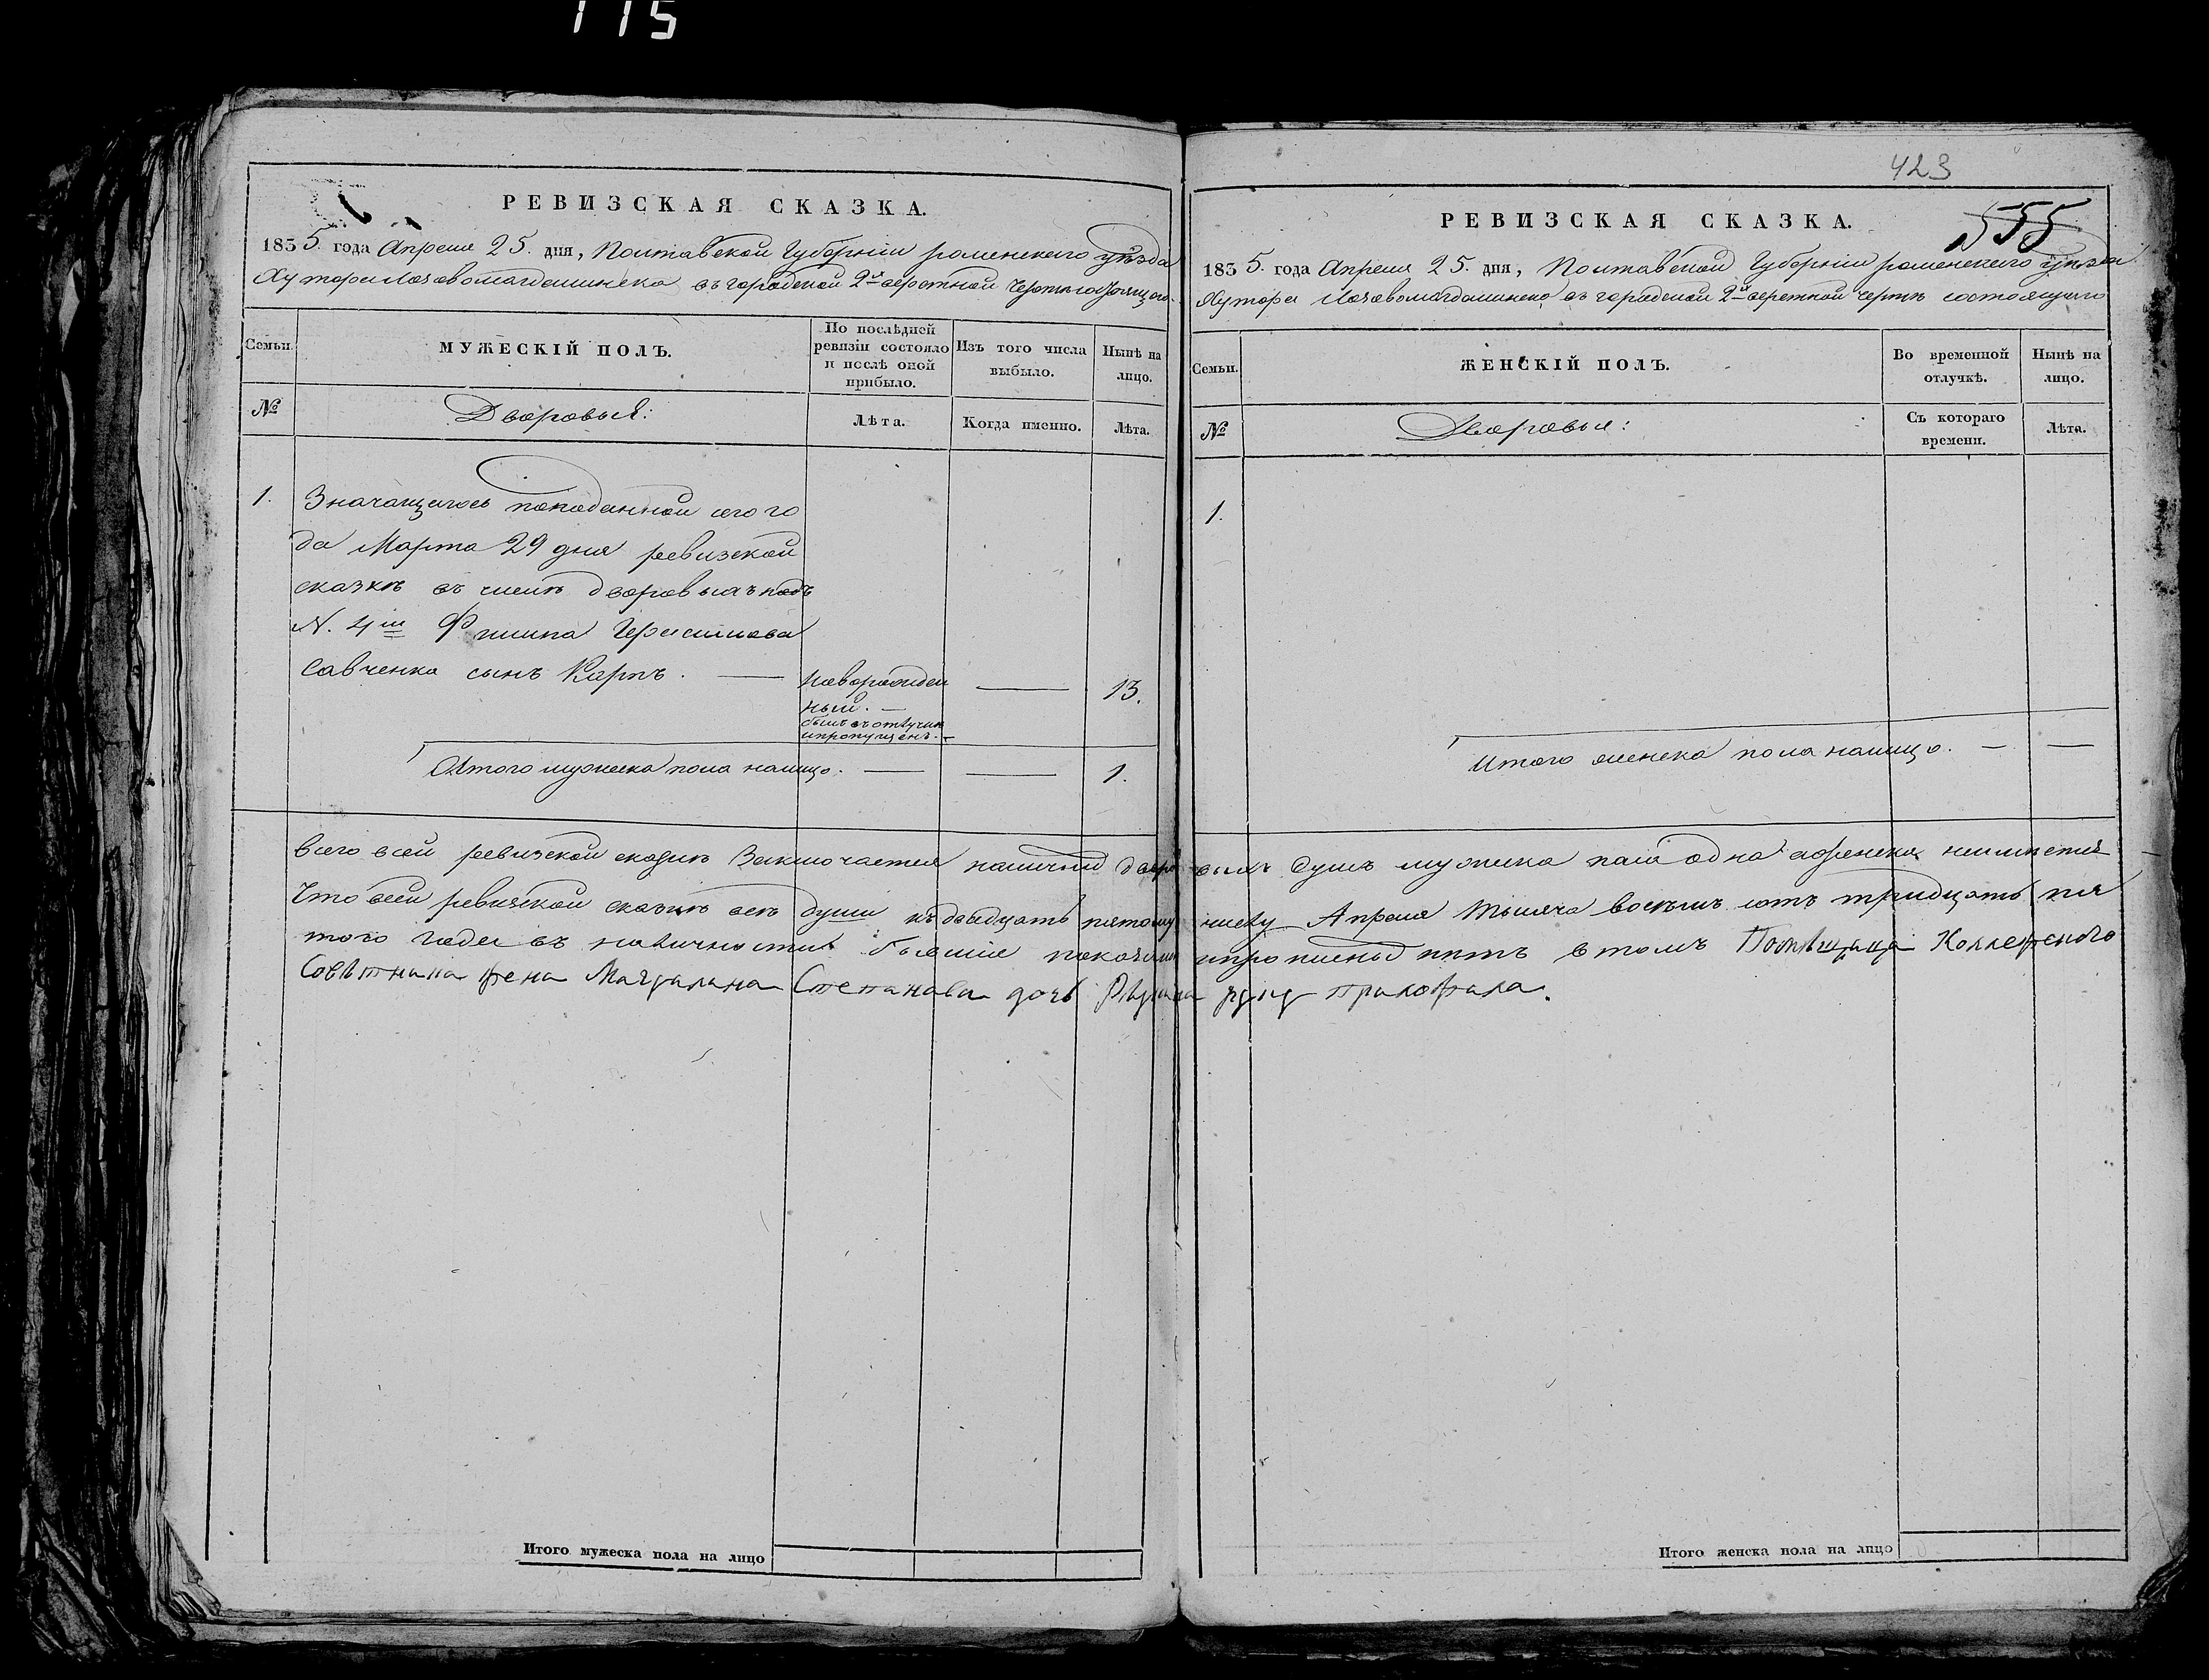 115
РЕВИЗСКАЯ СКАЗКА.
1835. года Апреля 25. дня, Полтавской Губернии роменского уѣзда
Хутора в городской 2й верстной
Семьи.
МУЖЕСКІЙ ПОЛЪ.
По послѣдней ревизіи состояло и послѣ оной прибыло.
Изъ того числа выбыло.
Нынѣ на лицо.
№
Дворовыя:
Лѣта.
Когда именно.
Лѣта.
1. Значащагось поподанной сего го
да Марта 29 дня ревизской
сказкѣ въ числѣ дворовыхъ подъ
N. 4м Филипа Герасимова
Савченка сынъ Карпъ. — новорожден — 13.
ный. —
былъ въ отлучкѣ
и пропущенъ. —
Итого мужеска пола налицо. — — 1.
423
555
РЕВИЗСКАЯ СКАЗКА.
1835. года Апреля 25. дня, Полтавской Губернии роменского уѣзда
Хутора в городской 2й верстной чертѣ состоящаго
Семьи.
ЖЕНСКІЙ ПОЛЪ.
Во временной отлучкѣ.
Нынѣ на лицо.
№
Дворовыя:
Съ котораго времени.
Лѣта.
1.
Итого женска пола налицо. — —
Всего всей ревизской сказкѣ Заключается наличныхъ дворовыхъ душъ мужеска пола одна а женска неимѣется —
Что всей ревизской сказкѣ всѣ души къ двадцать пятому числу Апреля тысяча восемь сотъ тридцать пя
того года въ наличности бывшие показаны и прописныхъ нѣтъ в томъ Помѣщица Коллежского
Совѣтника жена Магдалана Степанова дочь руку приложила.
Итого мужеска пола на лицо
Итого женска пола на лицо